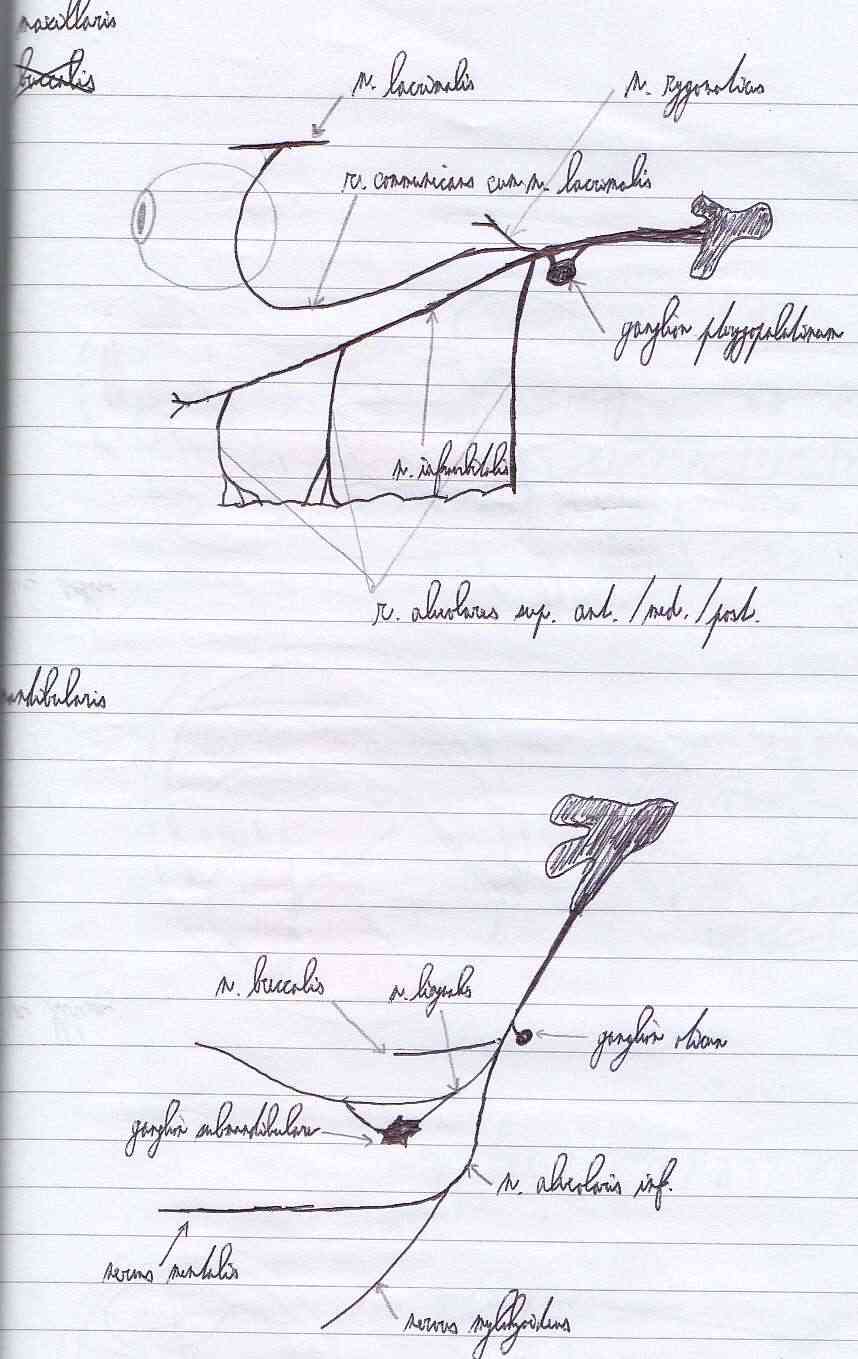 maxillaris
buccalis
n. lacrimalis
n. zygomaticus
r. communicans cum n. lacrimalis
ganglion pterygopalatinum
n. infraorbitalis
r. alveolares sup. ant. /med. /post.
mandibularis
n. buccalis
n. lingualis
ganglion oticum
ganglion submandibulare
n. alveolaris inf.
nervus mentalis
nervus mylohyoideus